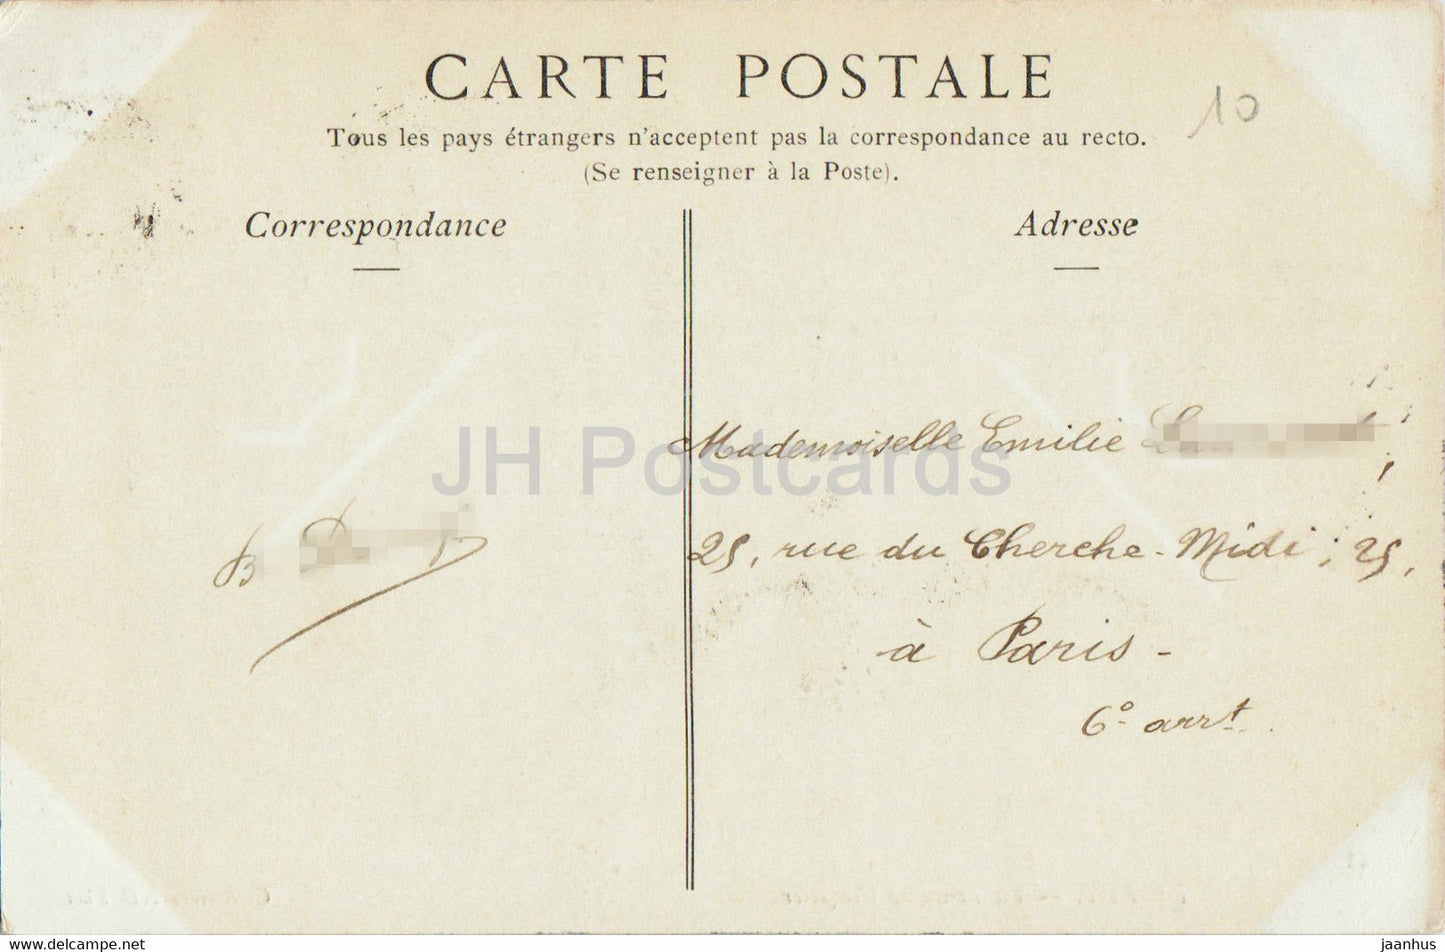 CARTE POSTALE
10
Tous les pays étrangers n'acceptent pas la correspondance au recto.
(Se renseigner à la Poste).
Correspondance
Adresse
Mademoiselle Emilie
JH Postcards
B
25, rue du Cherche-Midi, 25,
à Paris -
6º arrt.
www.hippostcard.com
jaanhus